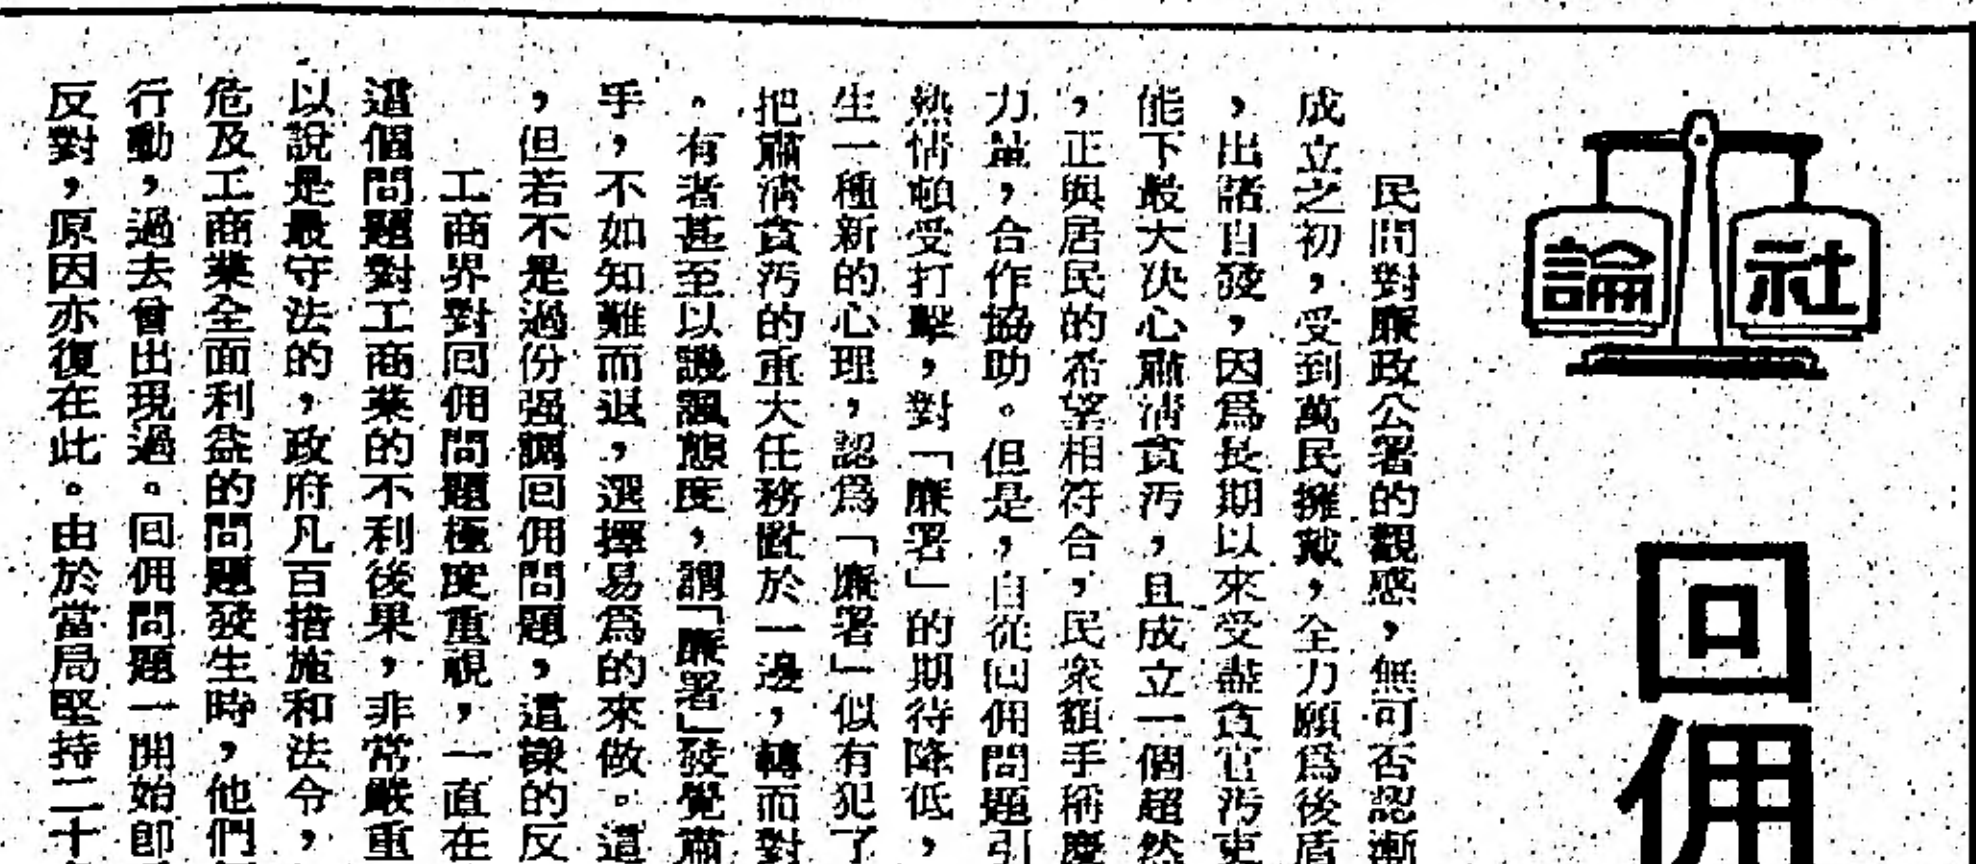 社論
回佣
民間對廉政公署的觀感，無可否認漸
成立之初，受到萬民擁戴，全力願爲後盾
，出諸自發，因爲長期以來受盡貪官汚吏
能下最大決心肅清貪汚，且成立一個超然
，正與居民的希望相符合，民衆額手稱慶
力量，合作協助。但是，自從回佣問題引
熱情頓受打擊，對「廉署」的期待降低，
生一種新的心理，認爲「廉署」似有犯了
把肅清貪汚的重大任務置於一邊，轉而對
。有者甚至以譏諷態度，謂「廉署」發覺肅
手，不如知難而退，選擇易爲的來做。這
，但若不是過份强調回佣問題，這樣的反
工商界對回佣問題極度重視，一直在
這個問題對工商業的不利後果，非常嚴重
以說是最守法的，政府凡百措施和法令，
危及工商業全面利益的問題發生時，他們
行動，過去曾出現過。回佣問題一開始即
反對，原因亦復在此。由於當局堅持二十